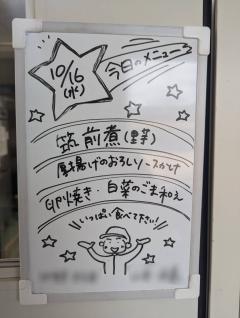 10/16
(水)
今日のメニュー
筑前煮(里芋)
厚揚げのおろしソースがけ
卵焼き・白菜のごま和え
いっぱい食べて下さい!